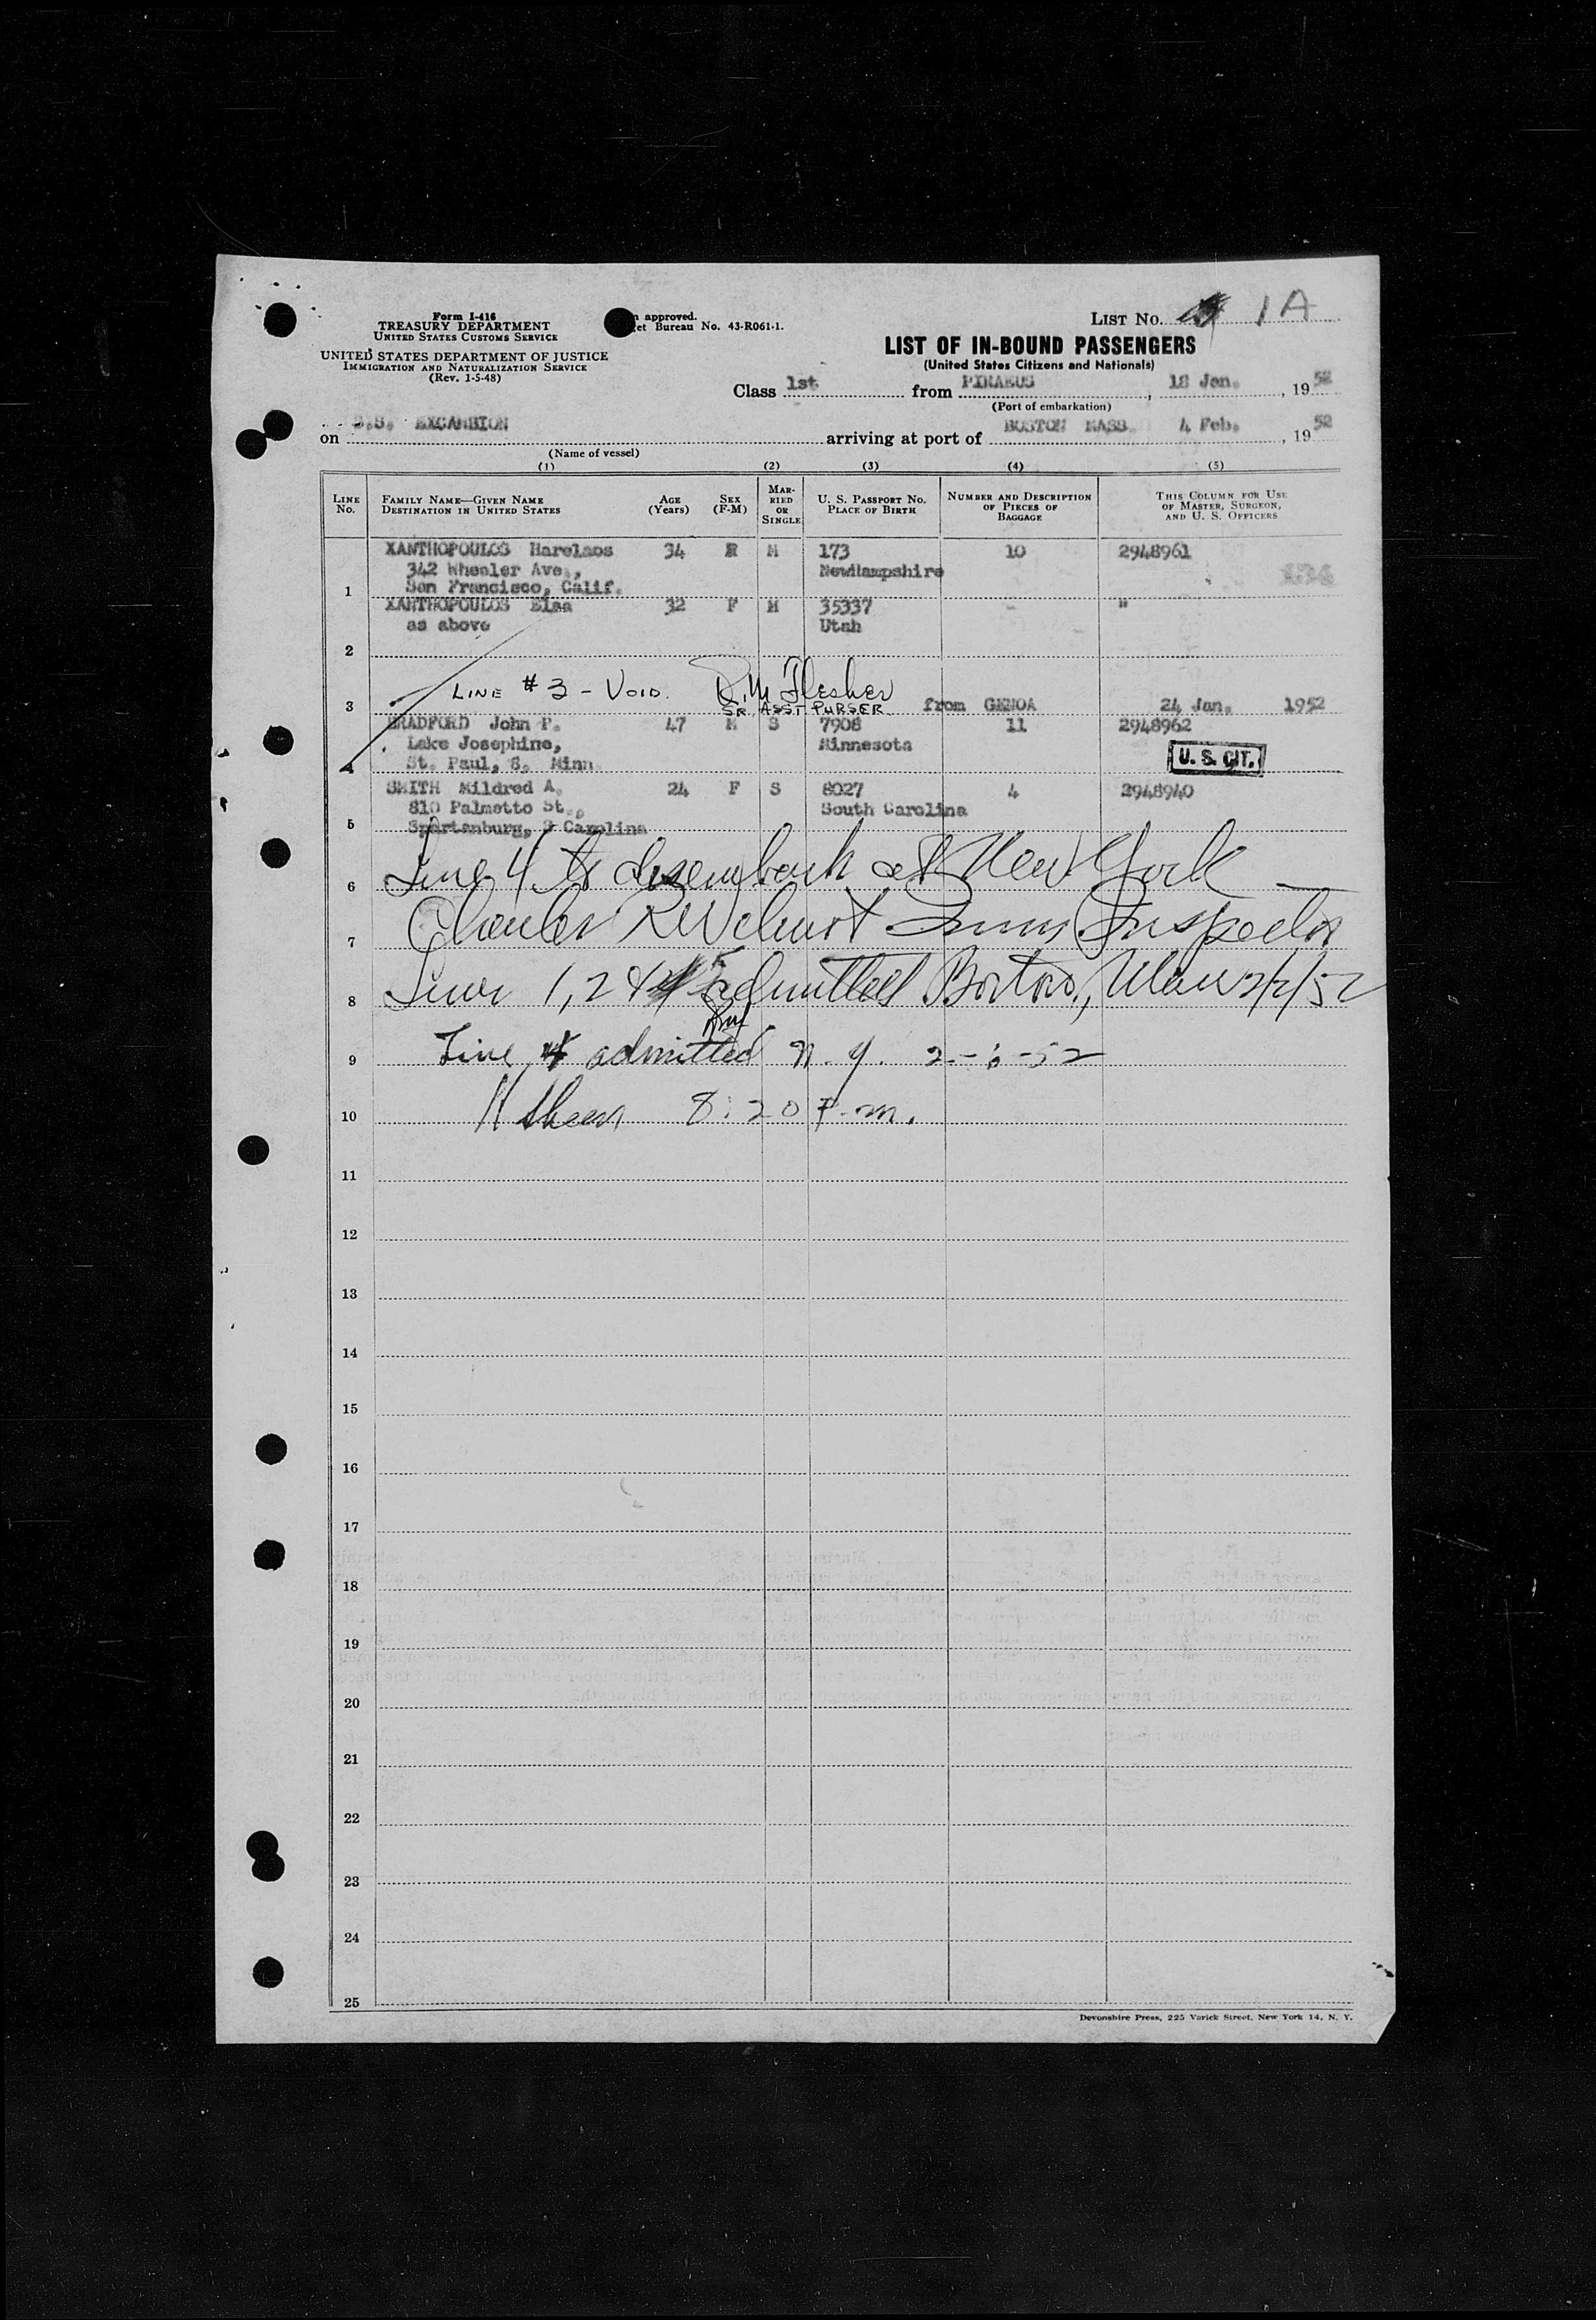 Form I-416
TREASURY DEPARTMENT
UNITED STATES CUSTOMS SERVICE
UNITED STATES DEPARTMENT OF JUSTICE
IMMIGRATION AND NATURALIZATION SERVICE
(Rev. 1-5-48)
approved.
et Bureau No. 43-R061-1.
LIST NO. 1A
LIST OF IN-BOUND PASSENGERS
(United States Citizens and Nationals)
Class 1st from PIRAEUS, 18 Jan., 1952
(Port of embarkation)
on S.S. EXCAMBION arriving at port of BOSTON MASS. 4 Feb., 1952
(Name of vessel)
(1) (2) (3) (4) (5)
LINE No. FAMILY NAME—GIVEN NAME DESTINATION IN UNITED STATES AGE (Years) SEX (F-M) MARRIED OR SINGLE U. S. PASSPORT NO. PLACE OF BIRTH NUMBER AND DESCRIPTION OF PIECES OF BAGGAGE THIS COLUMN FOR USE OF MASTER, SURGEON, AND U. S. OFFICERS
XANTHOPOULOS Harelaos 34 M 173 10 2948961
342 Wheeler Ave., NewHampshire
1 San Francisco, Calif.
XANTHOPOULOS Elsa 32 F M 35337 - "
as above Utah
2
LINE #3 - VOID. R.M Flesher
3 SR. ASST PURSER from GENOA 24 Jan. 1952
BRADFORD John P. 47 M S 7908 11 2948962
Lake Josephine, Minnesota U. S. CIT.
4 St. Paul, 8, Minn.
SMITH Mildred A. 24 F S 8027 4 2948940
810 Palmetto St., South Carolina
5 Spartanburg, S Carolina
6 Line 4 to disembark at New York
7 Charles Inspector
8 Lines 1, 2 & 5 admitted Boston, Mass 2/2/52
9 Line 4 admitted N. Y. 2-6-52
10 8:20 P.m.
11
12
13
14
15
16
17
18
19
20
21
22
23
24
25
Devonshire Press, 225 Varick Street, New York 14, N. Y.